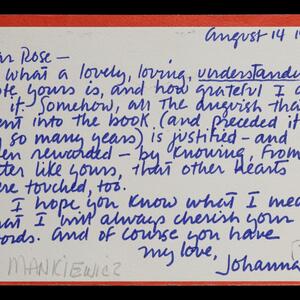 august 14 19
ar Rose —
what a lovely, loving, understandi
ote yours is, and how grateful I a
it. Somehow, all the anguish tha
ent into the book (and preceded it
so many years) is justified — and
en rewarded — by knowing, from
ter like yours, that other hearts
ere touched, too.
I hope you know what I mea
hat I will always cherish your
ords. And of course you have
my love,
Johanna
MANKIEWICZ